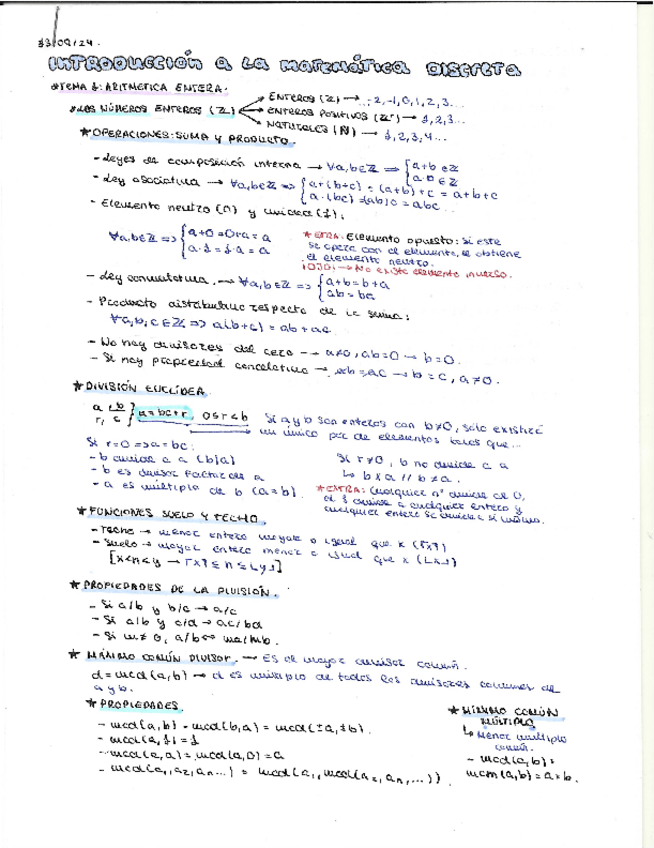 13/09/24.
INTRODUCCIÓN A LA MATEMÁTICA DISCRETA
*TEMA 1: ARITMETICA ENTERA.
*LOS NÚMEROS ENTEROS (ℤ)
ENTEROS (ℤ) → ..-2,-1,0,1,2,3...
ENTEROS POSITIVOS (ℤ⁺) → 1,2,3...
NATURALES (ℕ) → 1,2,3,4...
*OPERACIONES: SUMA y PRODUCTO.
- Leyes de composición interna → ∀a,b∈ℤ ⇒ { a+b ∈ℤ
a·b ∈ ℤ
- Ley asociativa → ∀a,b∈ℤ ⇒ { a+(b+c) = (a+b)+c = a+b+c
a·(bc) = (ab)c = abc
- Elemento neutro (0) y unidad (1):
∀a,b∈ℤ ⇒ { a+0=0+a=a
a·1=1·a=a
*EXTRA: Elemento opuesto: si este
se opera con el elemento, se obtiene
el elemento neutro.
¡OJO! → No existe elemento inverso.
- Ley conmutativa. → ∀a,b∈ℤ ⇒ { a+b=b+a
ab=ba
- Producto distributivo respecto de la suma:
∀a,b,c∈ℤ ⇒ a(b+c)=ab+ac
- No hay divisores del cero → a≠0, ab=0 → b=0.
- Si hay propiedad cancelativa → ab=ac → b=c, a≠0.
*DIVISIÓN EUCLÍDEA
a |b
r, c } a=bc+r, 0≤r<b
Si a y b son enteros con b≠0, sólo existirá
un único par de elementos tales que...
Si r=0 ⇒ a=bc:
- b divide a a (b|a)
- b es divisor factor de a
- a es múltiplo de b (a=b).
Si r≠0, b no divide a a
↳ b∤a // b≠a.
*EXTRA: Cualquier nº divide al 0,
el 1 divide a cualquier entero y
cualquier entero se divide a sí mismo.
*FUNCIONES SUELO Y TECHO.
- Techo → menor entero mayor o igual que x (⌈x⌉)
- Suelo → mayor entero menor o igual que x (⌊x⌋)
[x<n<y → ⌈x⌉ ≤ n ≤ ⌊y⌋]
*PROPIEDADES DE LA DIVISIÓN.
- Si a/b y b/c → a/c
- Si a/b y c/d → ac/bd
- Si m≠0, a/b ⇔ ma/mb.
* MÁXIMO COMÚN DIVISOR. → Es el mayor divisor común.
d=mcd(a,b) → d es múltiplo de todos los divisores comunes de
a y b.
*PROPIEDADES.
- mcd(a,b) = mcd(b,a) = mcd(±a,±b).
- mcd(a,1)=1
- mcd(a,a)=mcd(a,0)=a
- mcd(a₁,a₂,aₙ...) = mcd(a₁,mcd(a₂,aₙ,...))
*MÍNIMO COMÚN
MÚLTIPLO
↳ Menor múltiplo
común.
- mcd(a,b)·
mcm(a,b)=a·b.